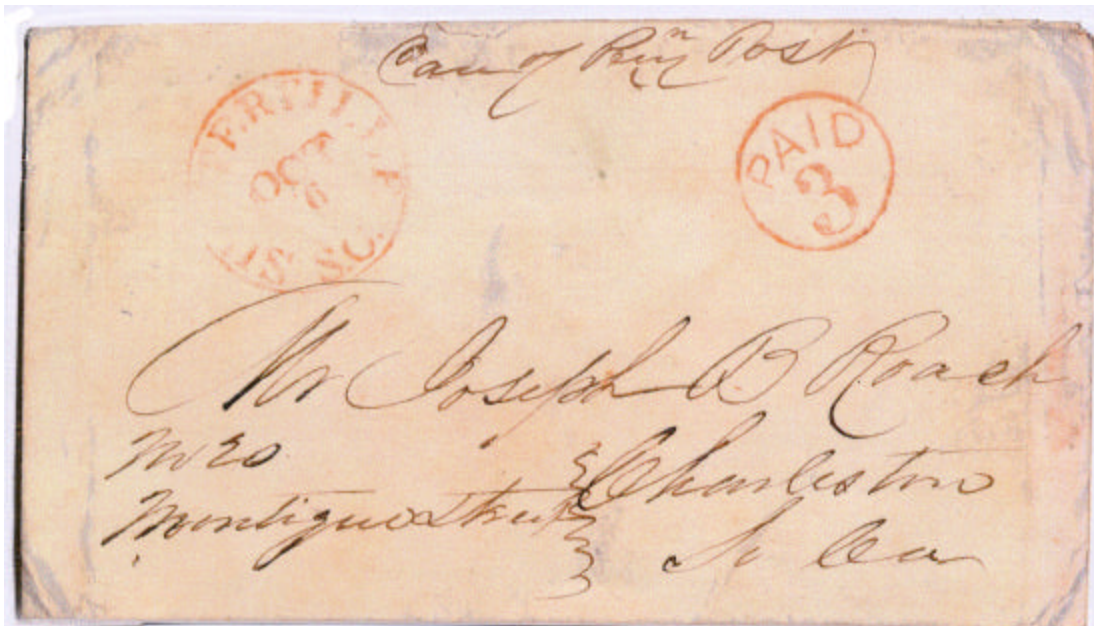 Care of Post
OCT
6
PAID
3
Mr Joseph B Roach
No 20
Montigue Street
Charleston
So Ca